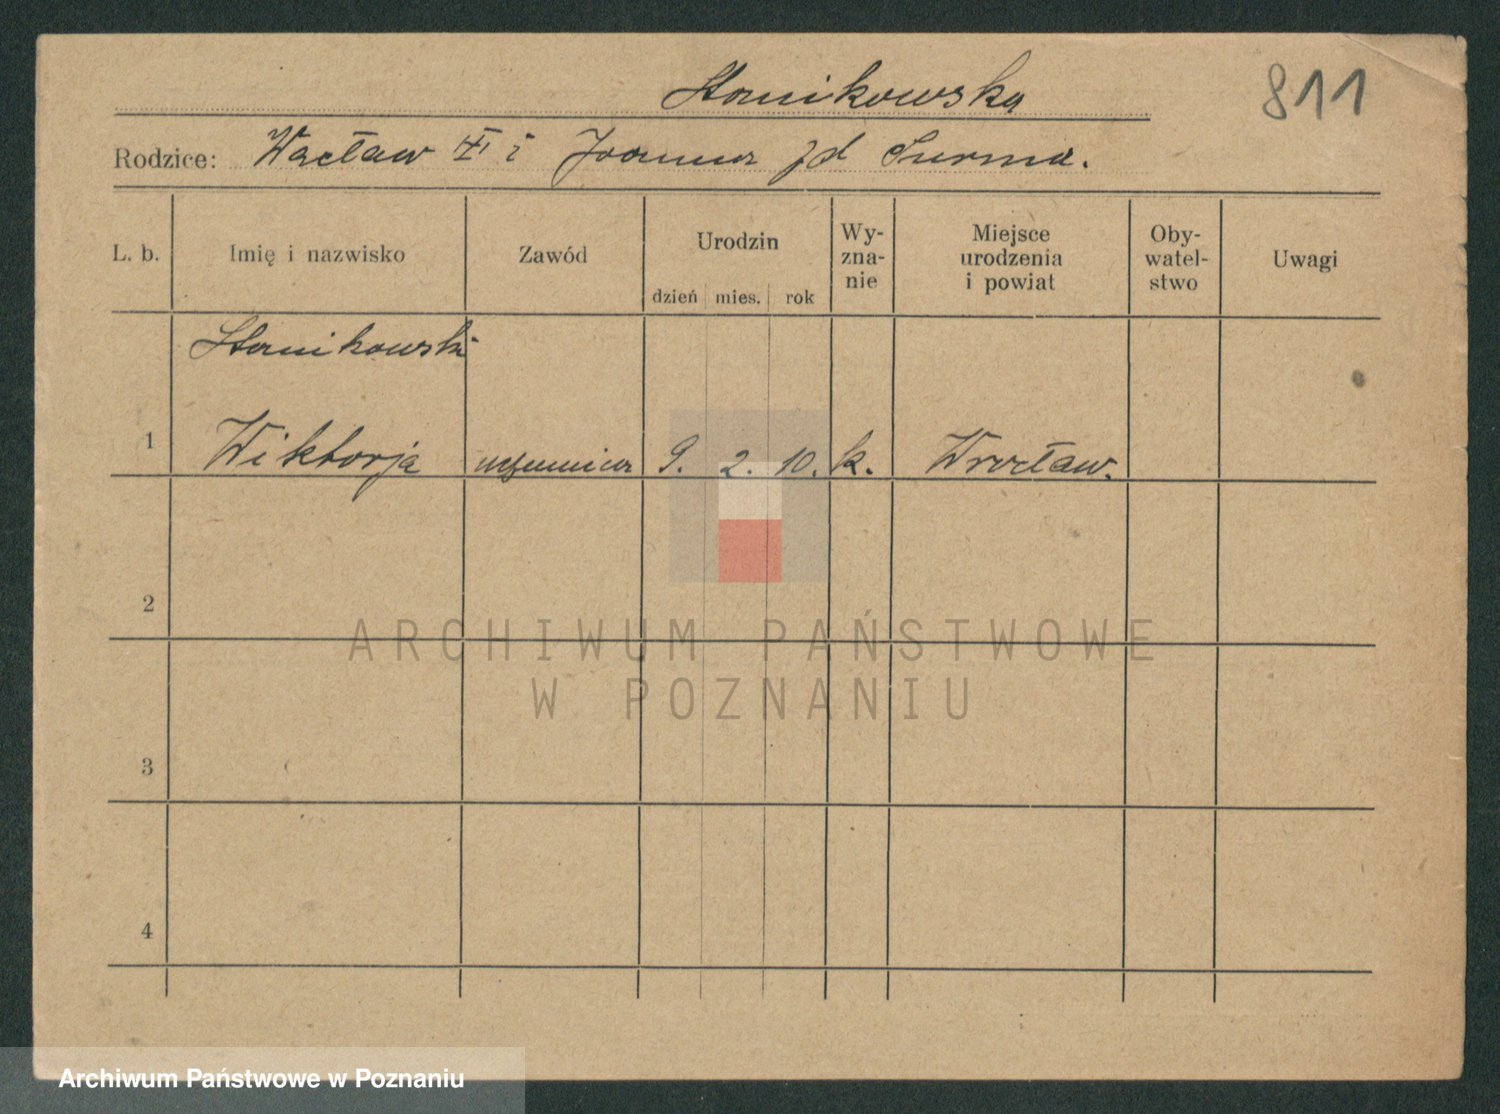 Stanikowska
811
Rodzice: Wacław i Joanna zd Surma.
L. b. Imię i nazwisko Zawód Urodzin Wy-zna-nie Miejsce urodzenia i powiat Oby-watel-stwo Uwagi
dzień mies. rok
Stanikowski
1 Wiktorja uczennica 9. 2. 10. k. Wrocław.
2
ARCHIWUM PAŃSTWOWE
W POZNANIU
3
4
Archiwum Państwowe w Poznaniu